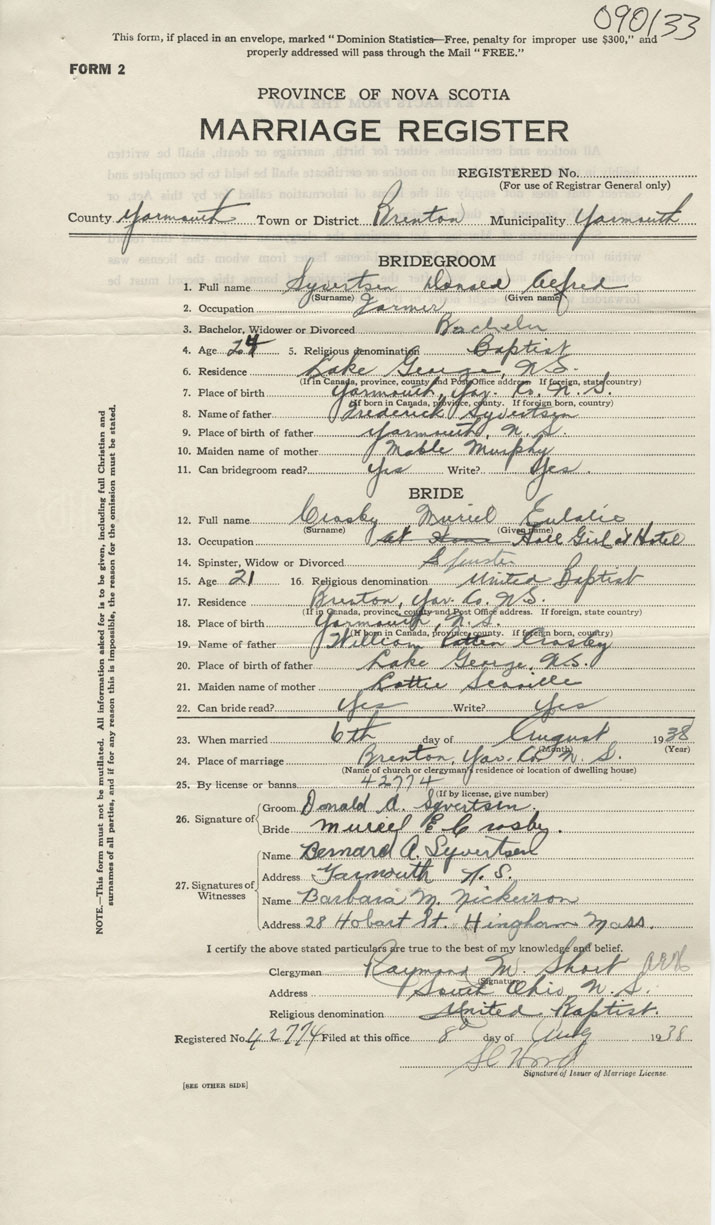 090133
This form, if placed in an envelope, marked "Dominion Statistics—Free, penalty for improper use $300," and
properly addressed will pass through the Mail "FREE."
FORM 2
PROVINCE OF NOVA SCOTIA
MARRIAGE REGISTER
REGISTERED No.
(For use of Registrar General only)
County Yarmouth Town or District Brenton Municipality Yarmouth
BRIDEGROOM
1. Full name Syvertsen Donald Alfred
(Surname) (Given name)
2. Occupation Farmer
3. Bachelor, Widower or Divorced Bachelor
4. Age 24 5. Religious denomination Baptist
6. Residence Lake George, N.S.
(If in Canada, province, county and Post Office address. If foreign, state country)
7. Place of birth Yarmouth, Yar. Co. N. S.
(If born in Canada, province, county. If foreign born, country)
8. Name of father Frederick Syvertsen
9. Place of birth of father Yarmouth, N. S.
10. Maiden name of mother Mable Murphy
11. Can bridegroom read? Yes Write? Yes.
BRIDE
12. Full name Crosby Muriel Eulalie
(Surname) (Given name)
13. Occupation at Hall Girl at Hotel
14. Spinster, Widow or Divorced Spinster
15. Age 21 16. Religious denomination United Baptist
17. Residence Brenton, Yar. Co. N.S.
(If in Canada, province, county and Post Office Address. If foreign, state country)
18. Place of birth Yarmouth, N.S.
(If born in Canada, province, county. If foreign born, country)
19. Name of father William Crosby
20. Place of birth of father Lake George, N.S.
21. Maiden name of mother Lottie
22. Can bride read? Yes Write? Yes
23. When married 6th day of August 1938
(Month) (Year)
24. Place of marriage Brenton, Yar. Co. N. S.
(Name of church or clergyman's residence or location of dwelling house)
25. By license or banns 42774
(If by license, give number)
26. Signature of Groom Donald A. Syvertsen.
Bride Muriel E Crosby.
27. Signatures of Witnesses Name Bernard A. Syvertsen
Address Yarmouth N. S.
Name Barbara M. Nickerson
Address 28 Hobart St. Hingham Mass.
I certify the above stated particulars are true to the best of my knowledge and belief.
Clergyman Raymond M. Short
(Signature)
Address South Ohio N. S.
Religious denomination United Baptist.
Registered No. 42774 Filed at this office 8 day of Aug 1938
Signature of Issuer of Marriage License.
[SEE OTHER SIDE]
NOTE.—This form must not be mutilated. All information asked for is to be given, including full Christian and
surnames of all parties, and if for any reason this is impossible, the reason for the omission must be stated.